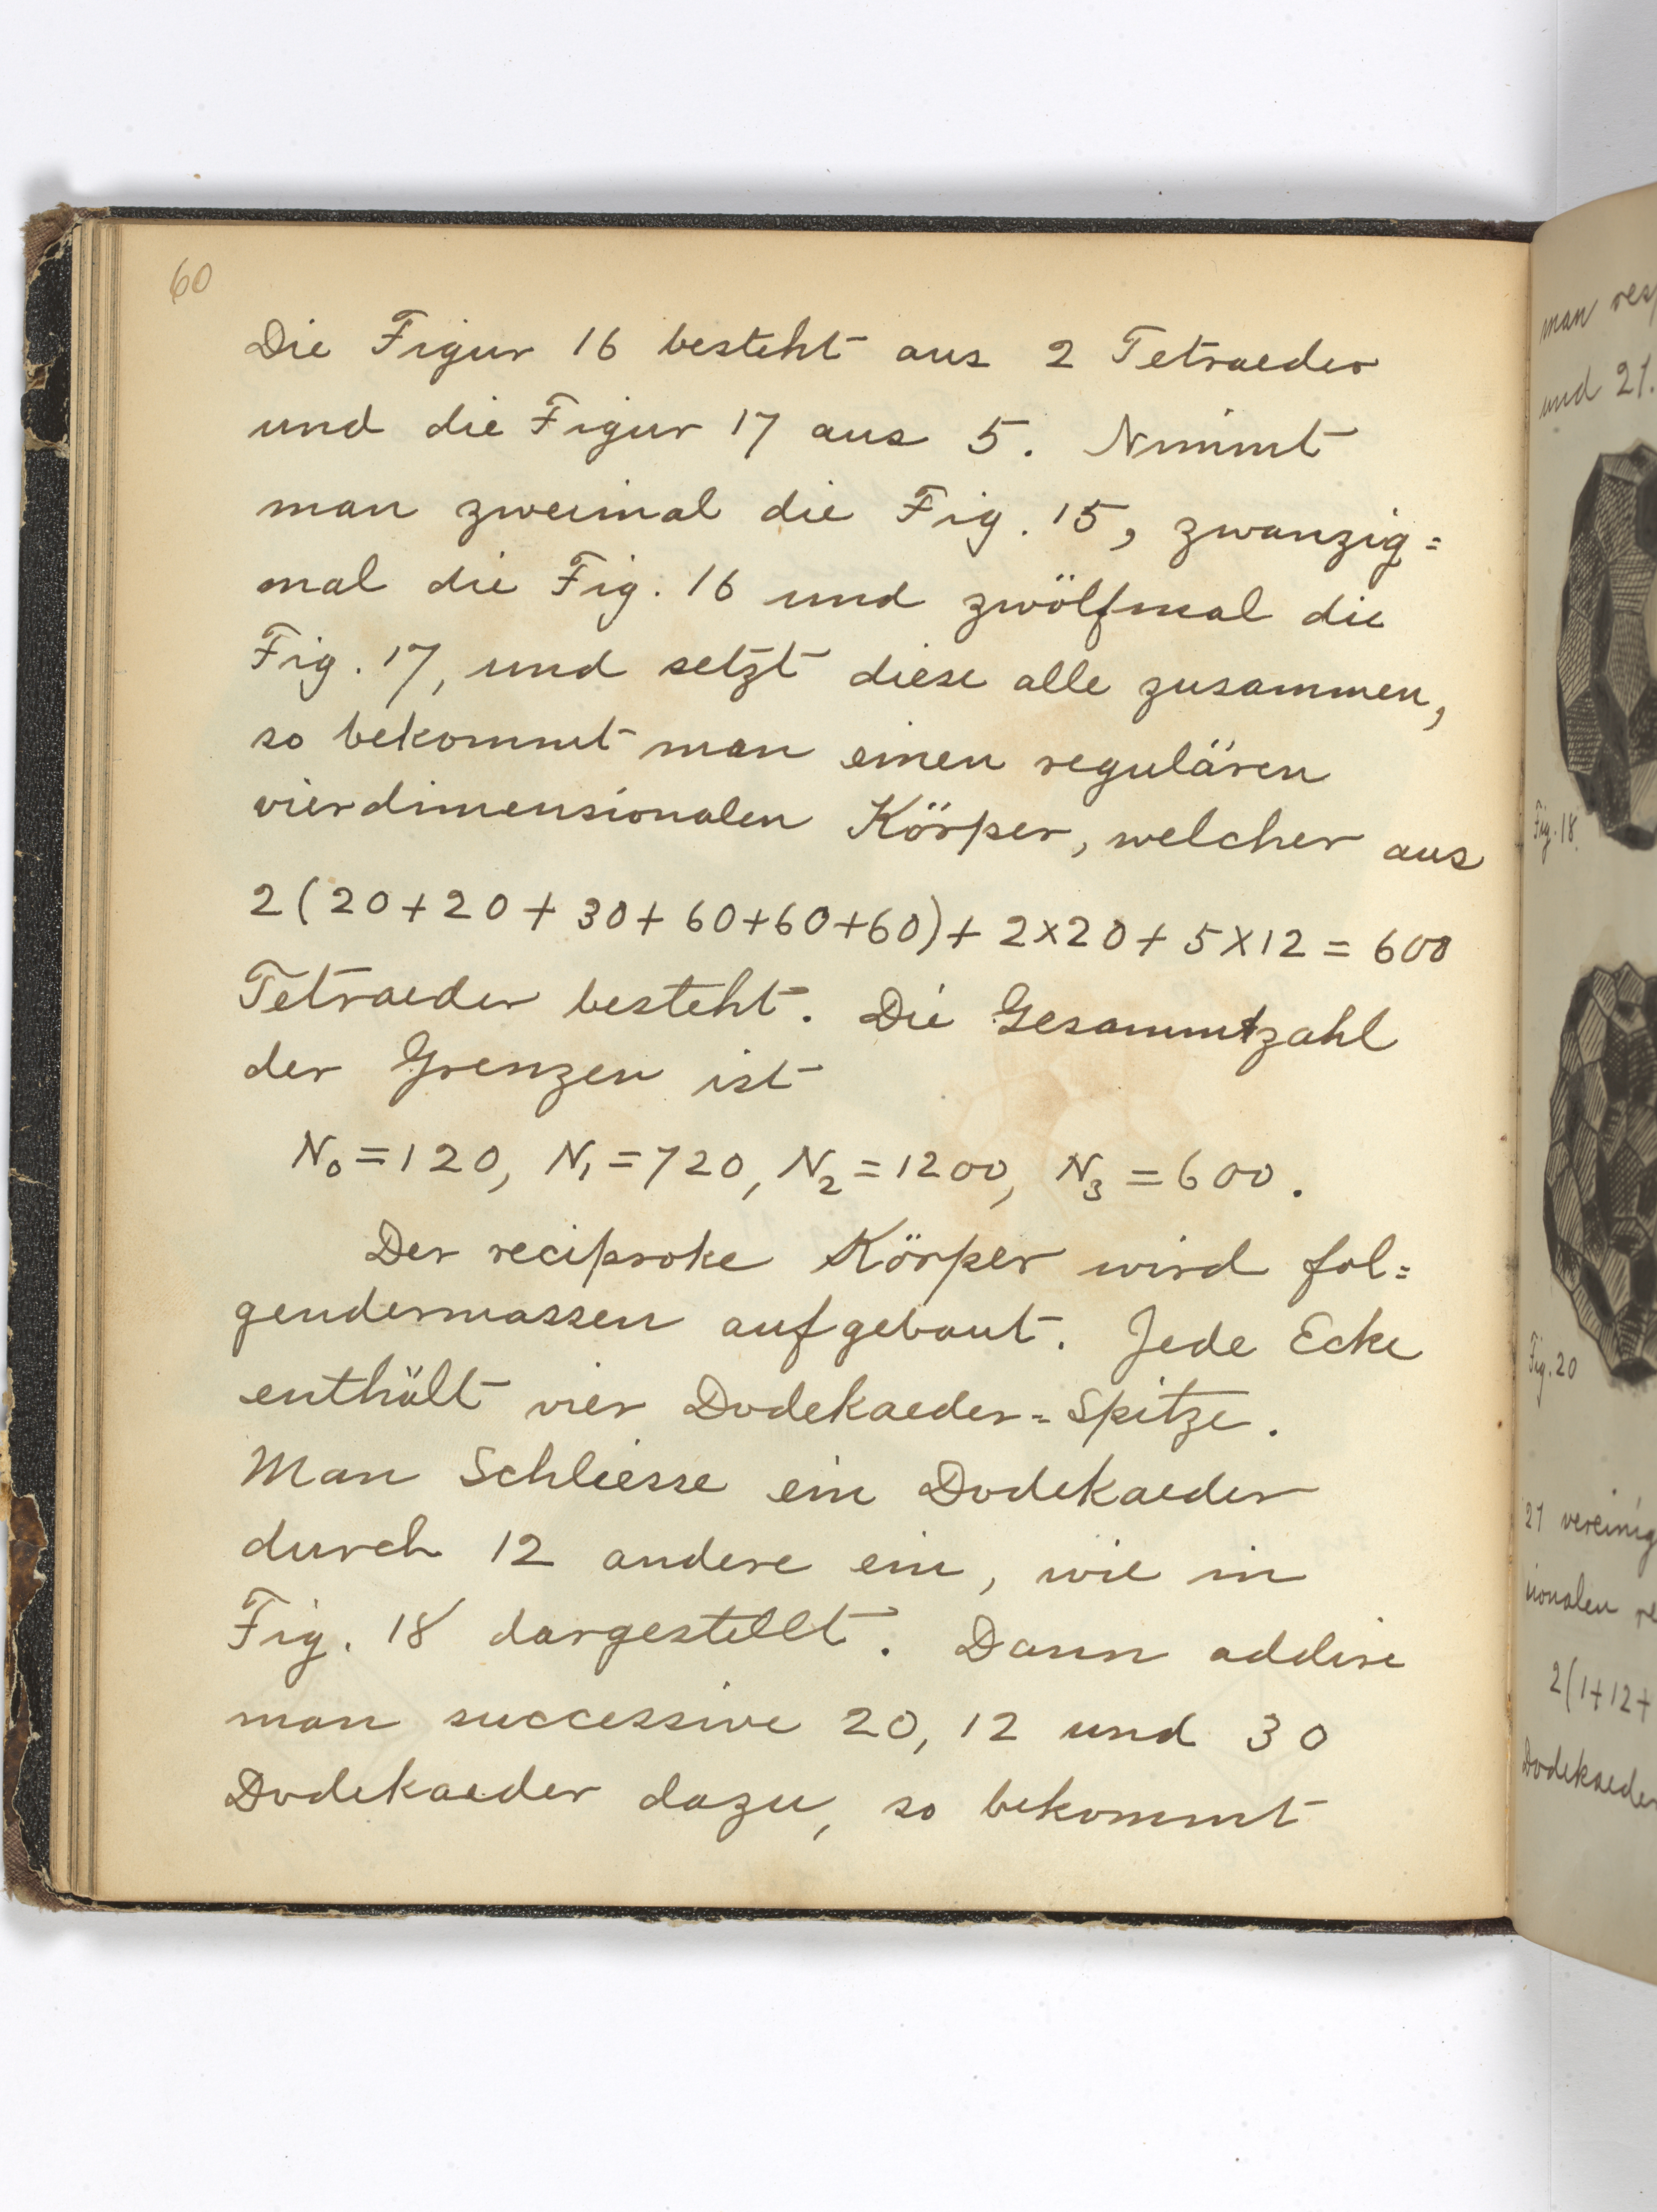 60
Die Figur 16 besteht aus 2 Tetraeder
und die Figur 17 aus 5. Nimmt
man zweimal die Fig. 15, zwanzig=
mal die Fig. 16 und zwölfmal die
Fig. 17, und setzt diese alle zusammen,
so bekommt man einen regulären
vierdimensionalen Körper, welcher aus
2(20+20+30+60+60+60)+2×20+5×12=600
Tetraeder besteht. Die Gesammtzahl
der Grenzen ist
N₀=120, N₁=720, N₂=1200, N₃=600.
Der reciproke Körper wird fol=
gendermassen aufgebaut. Jede Ecke
enthält vier Dodekaeder=Spitze.
Man Schliesse ein Dodekaeder
durch 12 andere ein, wie in
Fig. 18 dargestellt. Dann addire
man successive 20, 12 und 30
Dodekaeder dazu, so bekommt
man
und 21.
Fig. 18.
Fig. 20
21 vereinig
ionalen re
2(1+12+
Dodekaeder